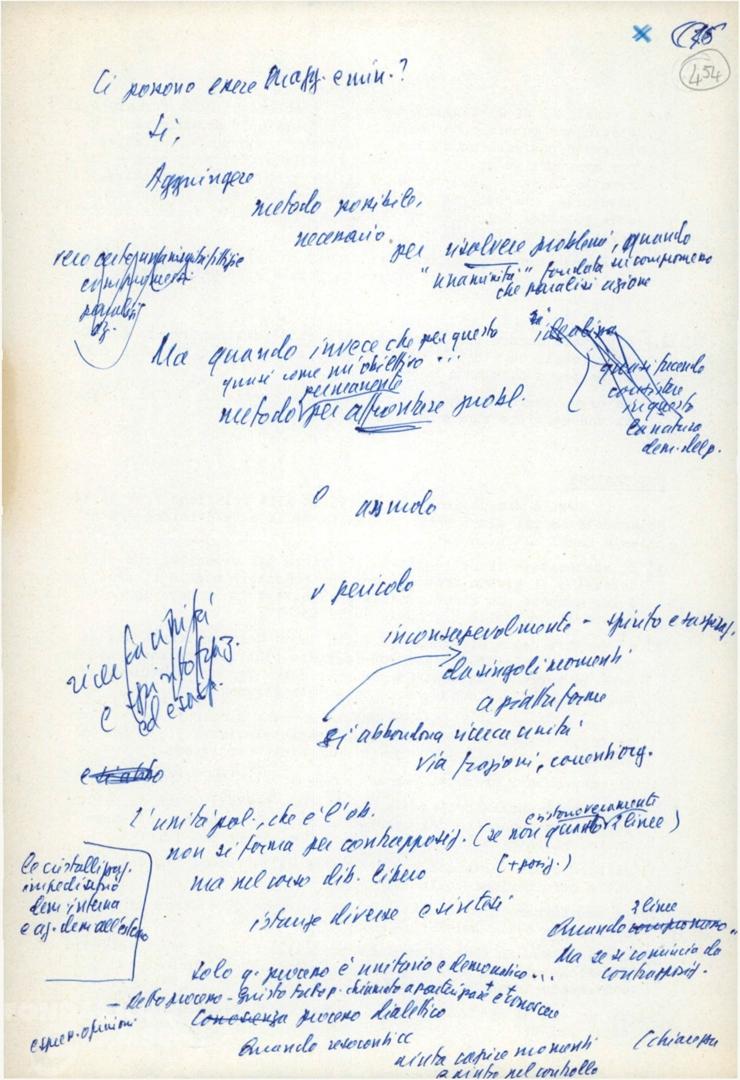 x 75
454
Ci possono essere magg. e min.?
Sì,
Aggiungere
metodo possibile,
necessario
per risolvere problemi, quando
"unanimità" fondata su compromesso
che paralisi azione
compromessi
paralisi
az.
si idealizza
Ma quando invece che per questo
quasi come un'obiettivo...
permanente
metodo per affrontare probl.
quasi facendo
consistere
in questo
la natura
dem. del p.
o assurdo
v pericolo
inconsapevolmente - spirito e
da singoli momenti
a piattaforme
si abbandona ricerca unità
via frazioni, correnti org.
ricerca unità
e spirito fraz.
ed esasp.
L'unità pol., che è l'ob.
non si forma per contrapposiz. (se non quando 2 linee)
esistono veramente
(+ posiz.)
ma nel corso dib. libero
istanze diverse e sintesi
le cristallizzaz.
impediscono
dem interna
e az. dem all'esterno
2 linee
Quando
Ma se si comincia da
contrapposiz.
Solo q. processo è unitario e democratico...
- Detto processo - Giusto tutto p. chiamato a partecipare + e conoscere
Conoscenza processo dialettico
esprim. opinioni
Quando resoconti
aiuta capire momenti
aiuto nel controllo
(chiarezza